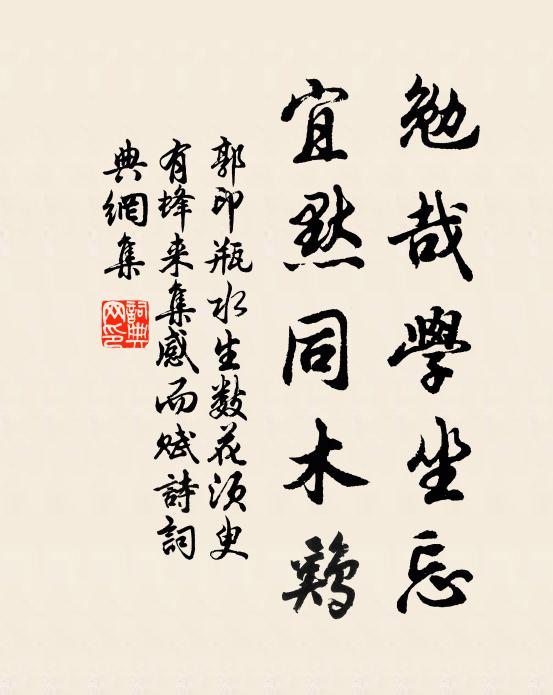 勉哉學坐忘
宜默同木鷄
郭印瓶水生數花須叟
有蜂来集感而赋詩詞
典網集
詞典
网印